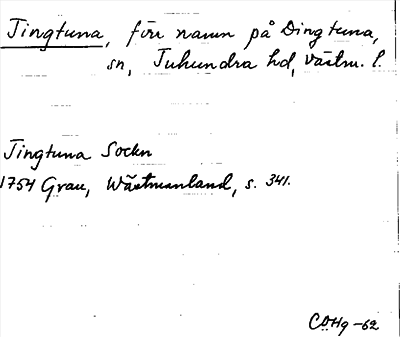 Tingtuna, förr namn på Dingtuna,
sn, Tuhundra hd, Västm. l.
Tingtuna Sockn
1754 Grau, Wästmanland, s. 341.
CÖHg -62